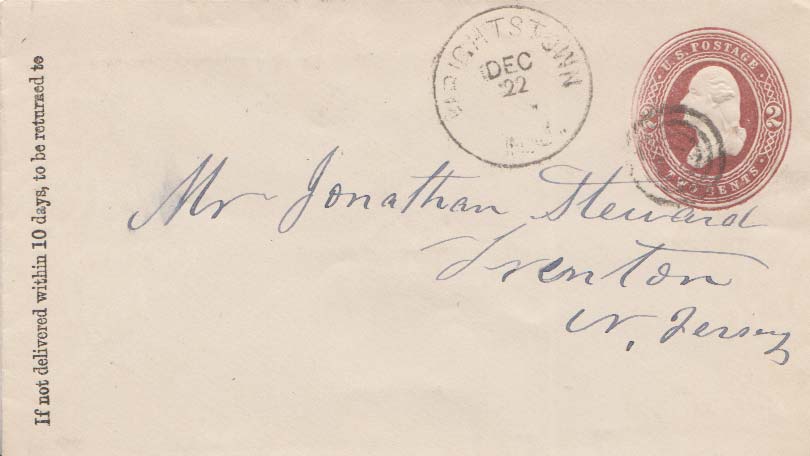 If not delivered within 10 days, to be returned to
WRIGHTSTOWN
DEC
22
U.S. POSTAGE
2 2
TWO CENTS
Mr Jonathan Steward
Trenton
N. Jersey